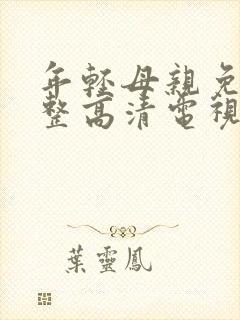 年輕母親免
整高清電視
葉靈鳳